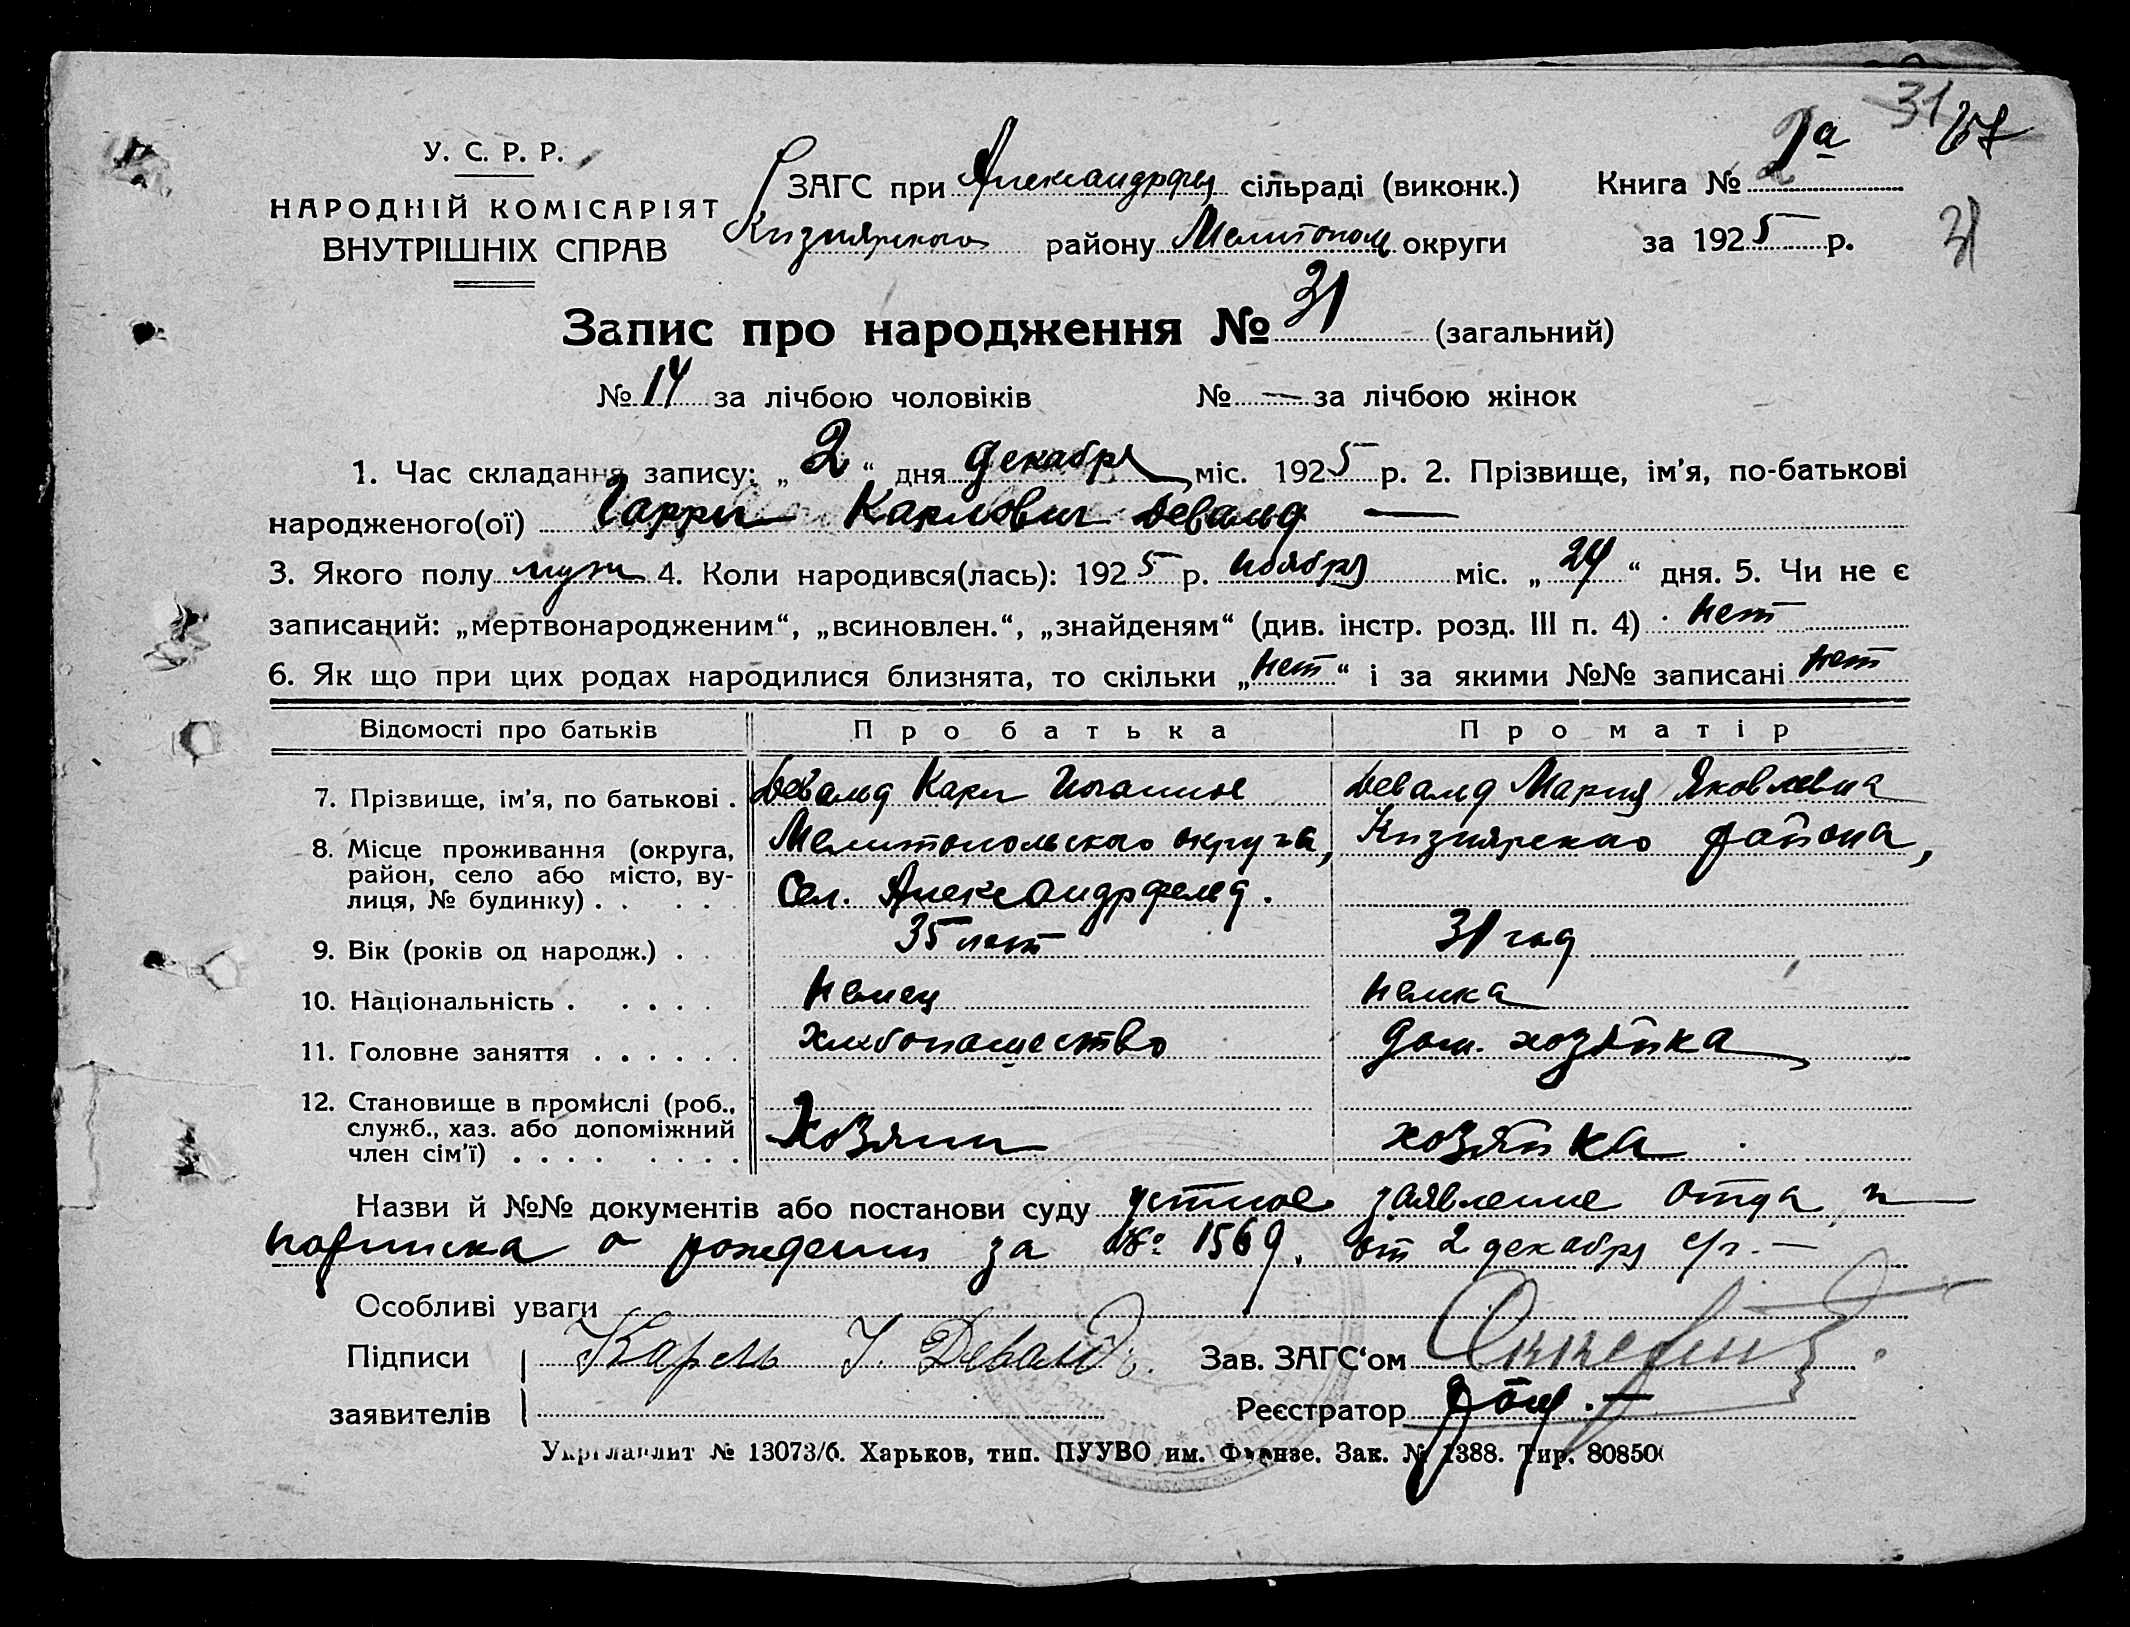 31
67
У. С. Р. Р.
НАРОДНІЙ КОМІСАРІЯТ
ВНУТРІШНІХ СПРАВ
ЗАГС при Александрфел сільраді (виконк.)
Книга № 2а
Кизиярского району Мелитопол округи
за 1925 р.
31
Запис про народження № 31 (загальний)
№ 14 за лічбою чоловіків № — за лічбою жінок
1. Час складання запису: „2“ дня декабря міс. 1925 р. 2. Прізвище, ім’я, по-батькові
народженого(ої) Гарри Карлович Девальд —
3. Якого полу муж 4. Коли народився(лась): 1925 р. ноября міс. „24“ дня. 5. Чи не є
записаний: „мертвонародженим“, „всиновлен.“, „знайденям“ (див. інстр. розд. III п. 4) нет
6. Як що при цих родах народилися близнята, то скільки „нет“ і за якими №№ записані нет
Відомості про батьків Про батька Про матір
7. Прізвище, ім’я, по батькові . Девальд Карл Девальд Мария Яковлевна
8. Місце проживання (округа, Мелитопольского округа, Кизиярскао района,
район, село або місто, ву-
лиця, № будинку) . . . . . Сел. Александрфельд.
9. Вік (років од народж.) . . 35 лет 31 год
10. Національність . . . . . немец немка
11. Головне заняття . . . . . . хлебопашество дом. хозяйка
12. Становище в промислі (роб.,
служб., хаз. або допоміжний Хозяин хозяйка
член сім’ї) . . . . . . . .
Назви й №№ документів або постанови суду устное заявление отца и
подписка о рождении за № 1569. от 2 декабря с/г. —
Особливі уваги
Підписи Карль І. Девальд. Зав. ЗАГС‘ом
заявителів Реєстратор
Укрглавлит № 13073/б. Харьков, тип. ПУУВО им. Фрунзе. Зак. № 1388. Тир. 80850